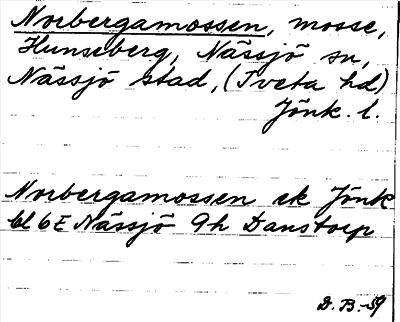 Norbergamossen, mosse,
Hunseberg, Nässjö sn,
Nässjö stad, (Tveta hd)
Jönk. l.
Norbergamossen ek Jönk
bl 6E Nässjö 9h Danstorp
D. B. -59